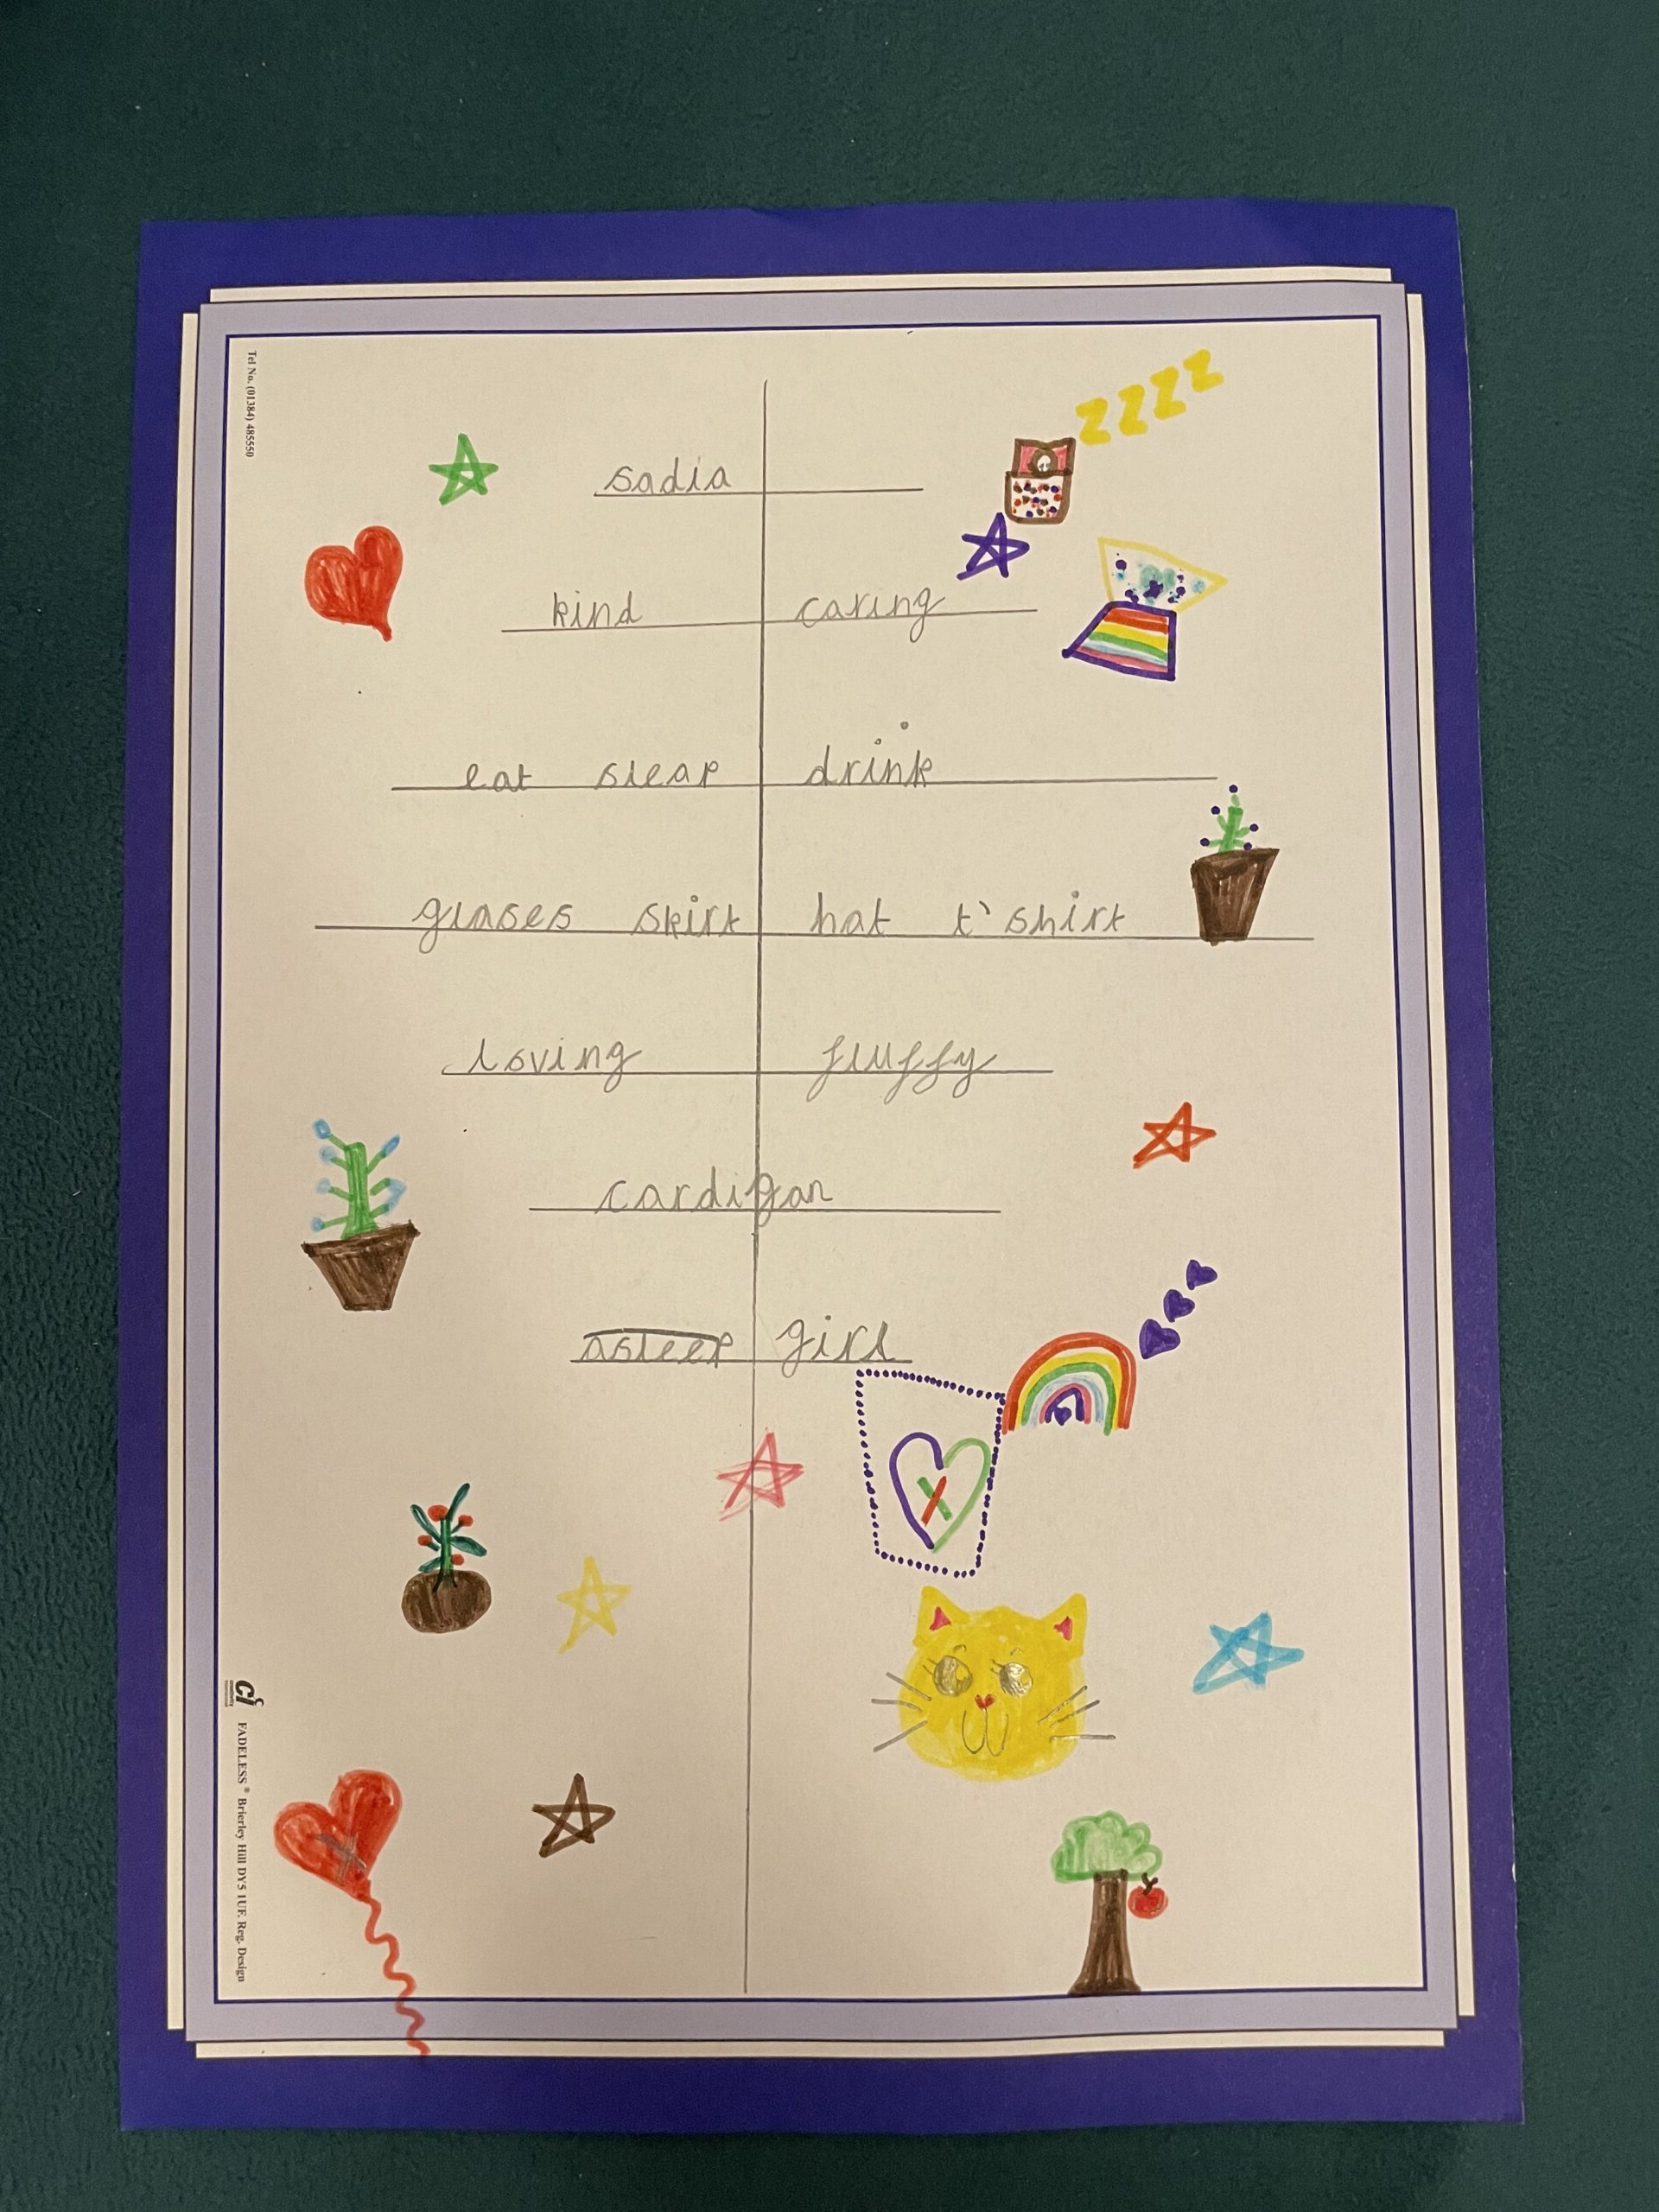 zzzz
sadia
kind caring
eat sleap drink
glases skirt hat t'shirt
loving fluffy
cardigan
asleep girl
x
x
Tel No. (01384) 485550
ci
FADELESS® Brierley Hill DY5 1UF. Reg. Design